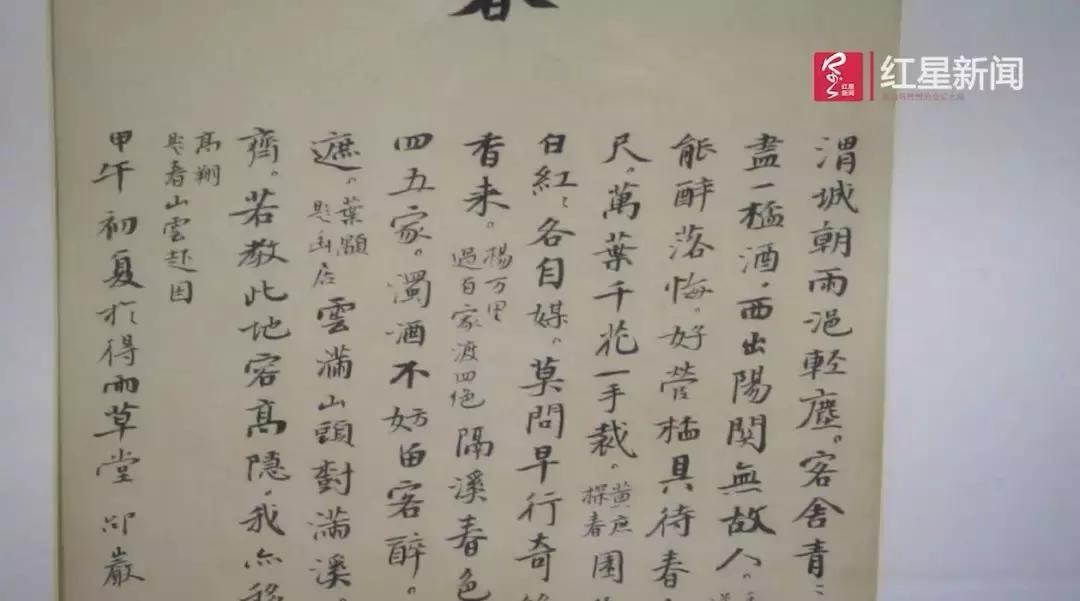 春
红星新闻
红星新闻
渭城朝雨浥輕塵。客舍青:
盡一榼酒。西出陽関無故人。
能醉落梅。好營榼具待春
尺。萬葉千花一手裁。黄庶
探春
白紅:各自媒。莫問早行奇
香来。楊万里
過百家渡四绝 隔溪春色
四五家。濁酒不妨留客醉。
遮。葉顒
題幽居 雲滿山頭對滿溪。
齊。若教此地容高隱。我亦移
高翔
題春山雲起图
甲午初夏於得雨草堂 邱巖